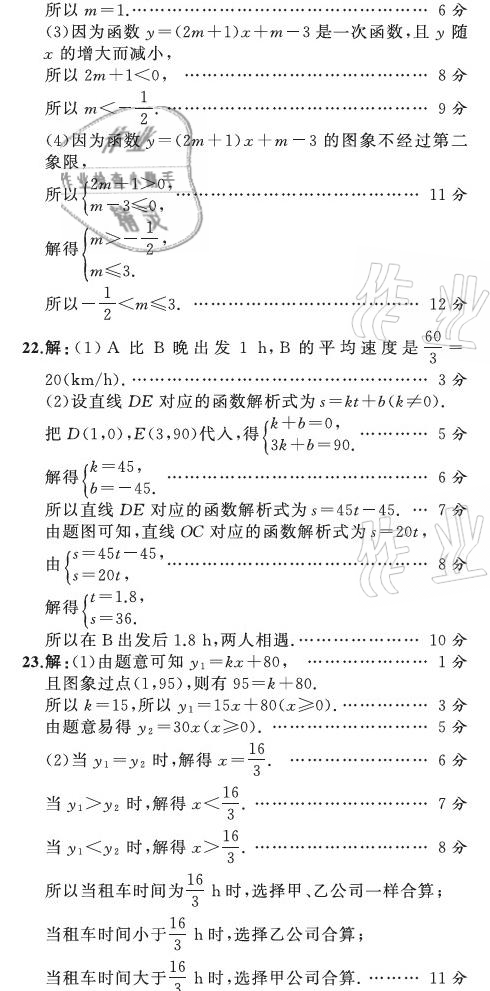 所以 m=1.…………………………………… 6 分
(3)因为函数 y=(2m+1)x+m-3 是一次函数,且 y 随
x 的增大而减小,
所以 2m+1<0, …………………………………… 8 分
所以 m<-1/2. …………………………………… 9 分
(4)因为函数 y=(2m+1)x+m-3 的图象不经过第二
象限,
所以{2m+1>0, m-3≤0, …………………………………… 11 分
解得{m>-1/2, m≤3.
所以-1/2<m≤3. …………………………………… 12 分
22.解:(1) A 比 B 晚出发 1 h,B 的平均速度是 60/3 =
20(km/h). …………………………………… 3 分
(2)设直线 DE 对应的函数解析式为 s=kt+b(k≠0).
把 D(1,0),E(3,90)代入,得{k+b=0, 3k+b=90. ………… 5 分
解得{k=45, b=-45. …………………………………… 6 分
所以直线 DE 对应的函数解析式为 s=45t-45. … 7 分
由题图可知,直线 OC 对应的函数解析式为 s=20t,
由{s=45t-45, s=20t, …………………………………… 8 分
解得{t=1.8, s=36.
所以在 B 出发后 1.8 h,两人相遇. ……………… 10 分
23.解:(1)由题意可知 y₁=kx+80, ……………… 1 分
且图象过点(1,95),则有 95=k+80.
所以 k=15,所以 y₁=15x+80(x≥0). …………… 3 分
由题意易得 y₂=30x(x≥0). …………………… 5 分
(2)当 y₁=y₂ 时,解得 x=16/3. …………………… 6 分
当 y₁>y₂ 时,解得 x<16/3. ……………………… 7 分
当 y₁<y₂ 时,解得 x>16/3. ……………………… 8 分
所以当租车时间为 16/3 h 时,选择甲、乙公司一样合算;
当租车时间小于 16/3 h 时,选择乙公司合算;
当租车时间大于 16/3 h 时,选择甲公司合算. ……… 11 分
作业
作业检查小助手
精灵
作业
作业